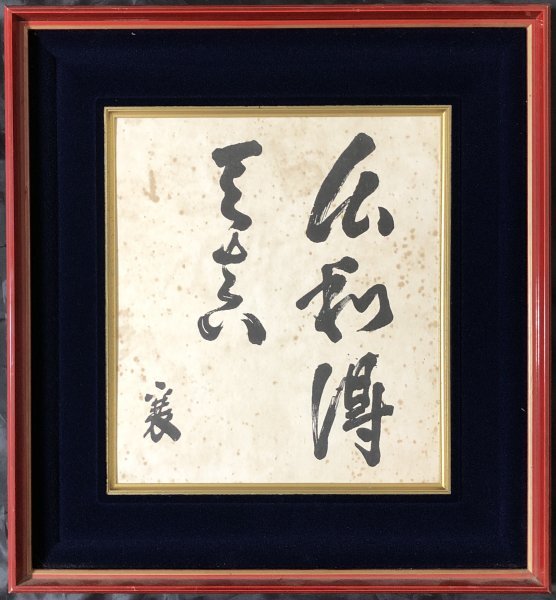 和得
天真
襄